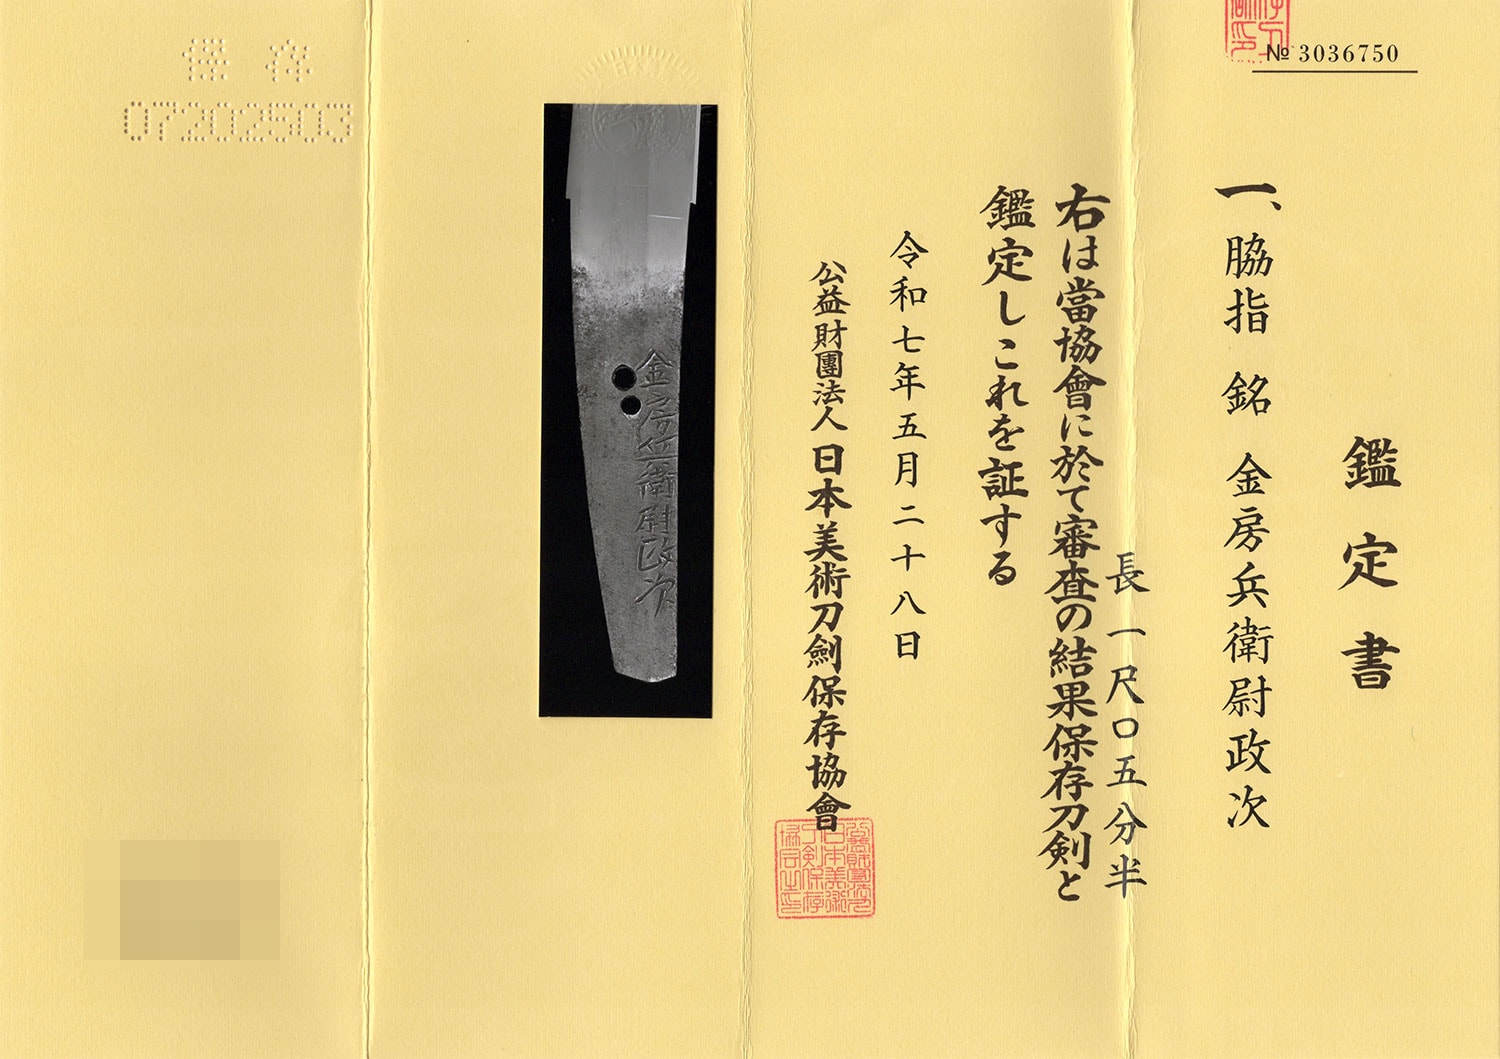 № 3036750
鑑定書
一、脇指 銘 金房兵衛尉政次
長 一尺〇五分半
右は當協會に於て審査の結果保存刀剣と
鑑定しこれを証する
令和七年五月二十八日
公益財團法人 日本美術刀劍保存協會
金房兵衛尉政次
保存
07202503